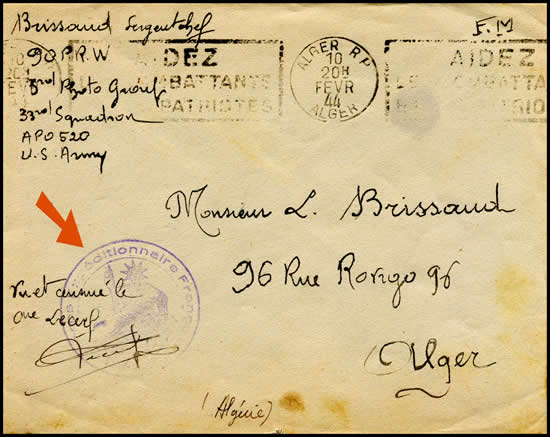 Brissaud Sergent chef
90 P.R.W
3rd Photo Group
33rd Squadron
APO 520
U.S. Army
F.M
AIDEZ
COMBATTANTS
PATRIOTES
ALGER R.P.
10
20H
FEVR
44
ALGER
AIDEZ
Monsieur L. Brissaud
96 Rue Rovigo 96
Alger
(Algérie)
Expéditionnaire
Vu et censuré le
Lecerf